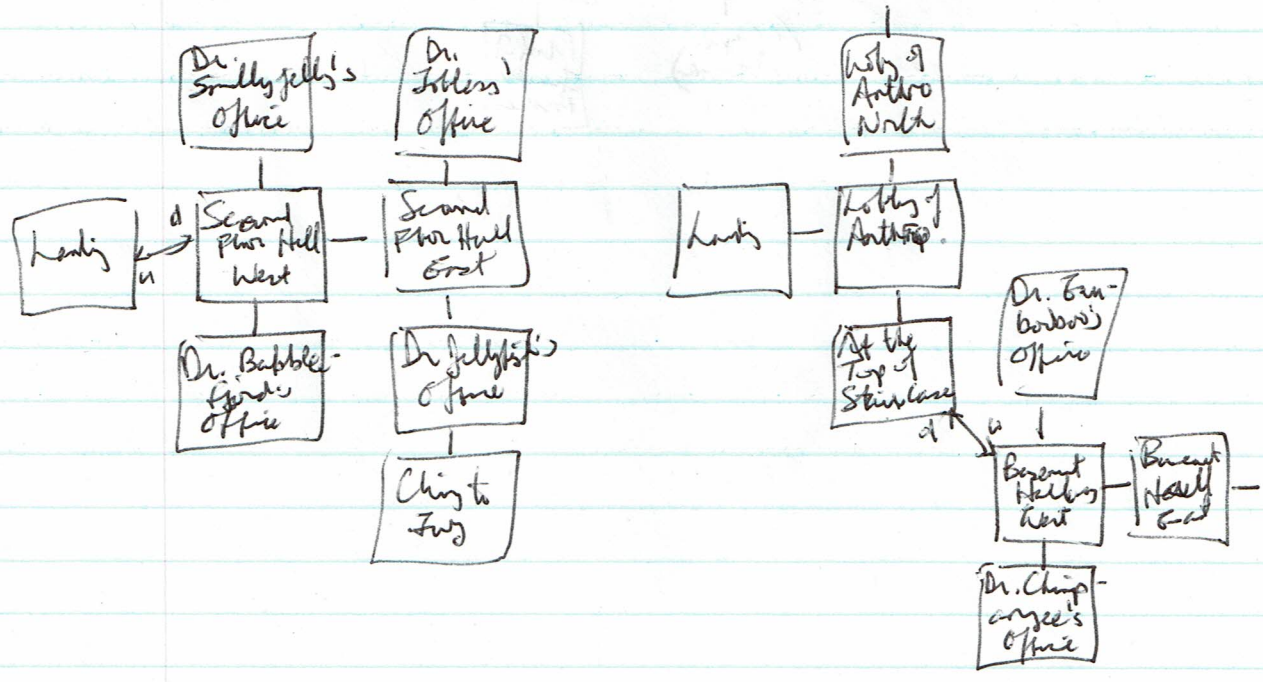 Dr.
Smellyjelly's
Office
Dr.
Office
Landing
d
u
Second
Floor Hall
West
Second
Floor Hall
East
Dr. Babble-
fjord's
Office
Dr. Jellyfish's
Office
Cling to
Ivy
Lobby of
Anthro
North
Landing
Lobby of
Anthrop.
At the
Top of
Staircase
d
u
Dr.
Office
Basement
Hallway
West
Basement
East
Dr. Chimp-
anzee's
Office